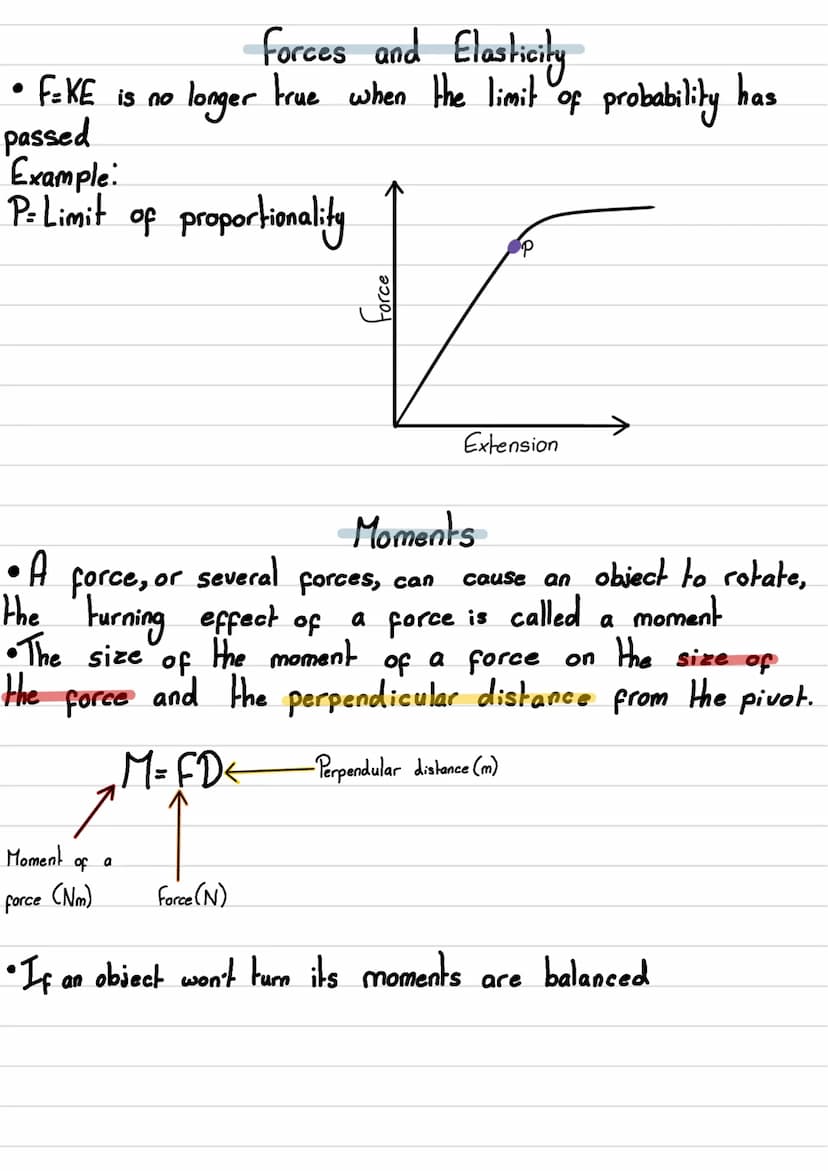 Forces and Elasticity
• F=KE is no longer true when the limit of probability has
passed
Example:
P=Limit of proportionality
P
Force
Extension
Moments
• A force, or several forces, can cause an object to rotate,
the turning effect of a force is called a moment
• The size of the moment of a force on the size of
the force and the perpendicular distance from the pivot.
M=FD
Perpendular distance (m)
Moment of a
force (Nm)
Force (N)
• If an object won't turn its moments are balanced